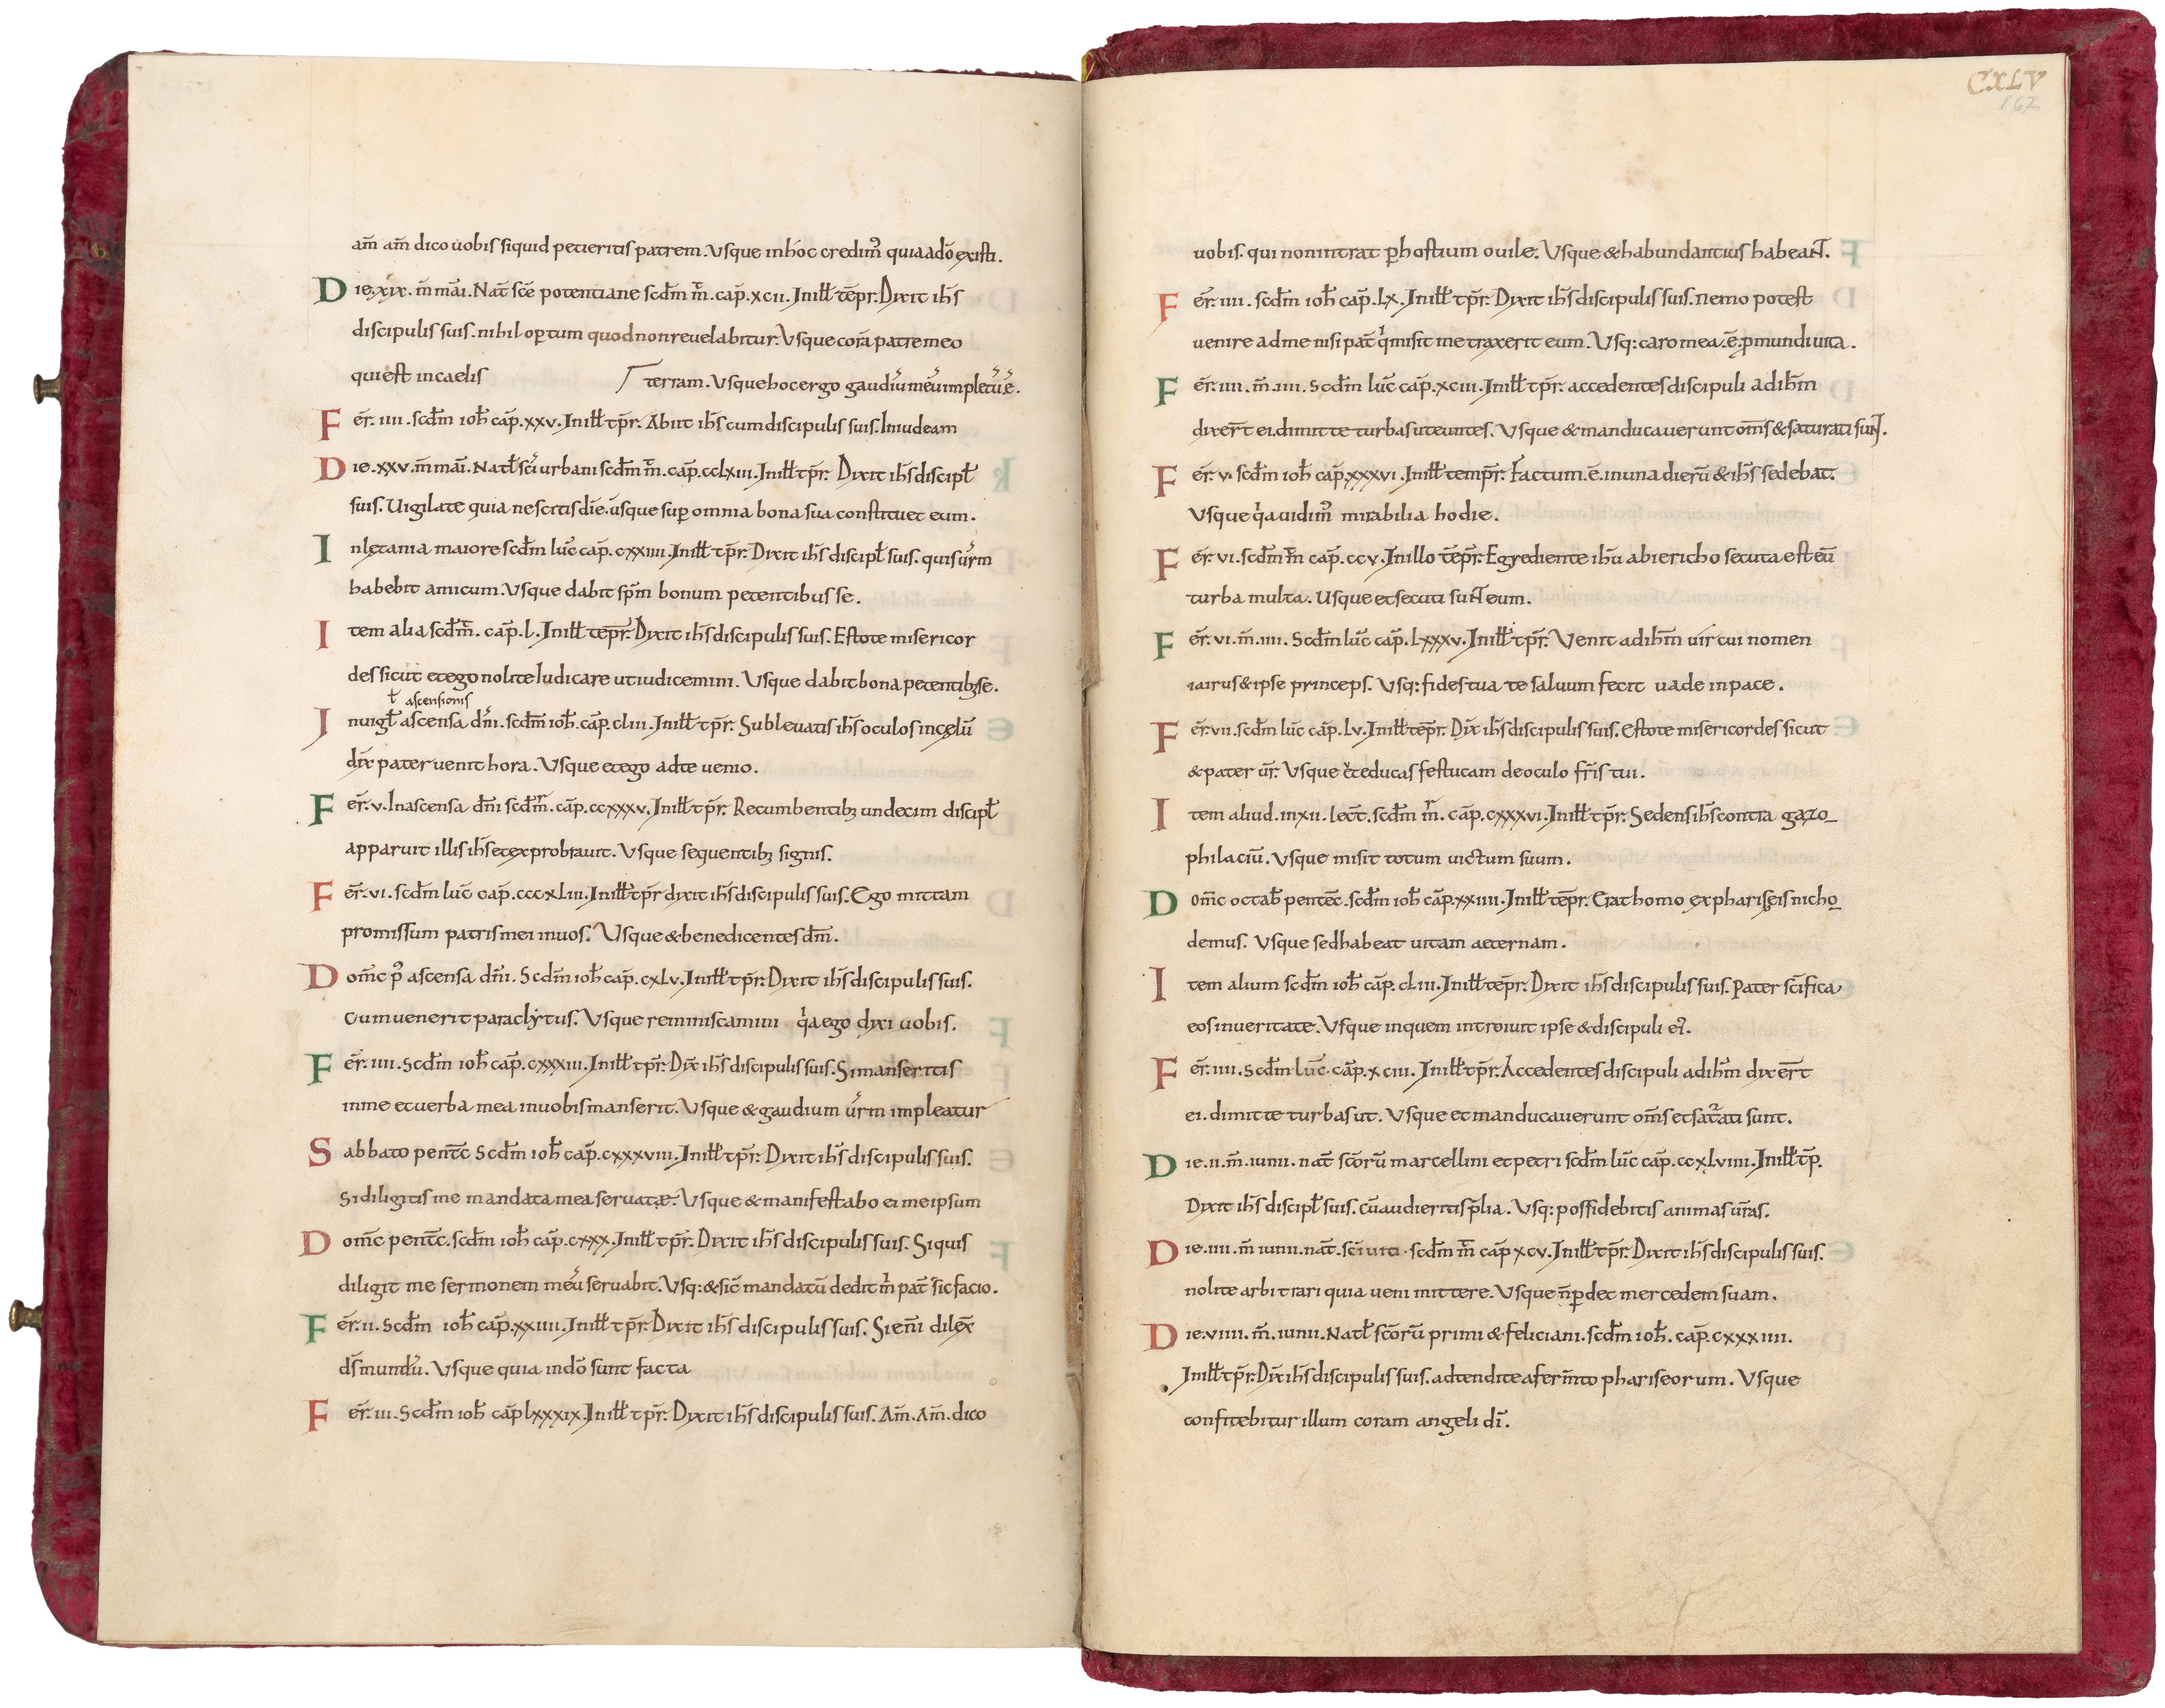 am̄ am̄ dico uobis siquid petieritis patrem. Vsque inhoc credim᷒ quiaadō existi.
Die. xix. m̄ māi. Nat̄ sc̄e potentiane scd̄m m̄r. cap̄. xcii. Inill̄ tēpr. Dixit ih̄s
discipulis suis. nihil opertum quodnonreuelabitur. Vsque corā patremeo
quiest incaelis
terram. Vsquehocergo gaudiūmeūimpletū.ē.
Fēr. iiii. scd̄m ioh̄ cap̄. xxv. Inill̄ tp̄r. Abiit ih̄s cumdiscipulis suis. Iniudeam
Die. xxv. m̄ māi. Natl̄ sc̄i urbani scd̄m m̄r. cap̄. cclxiii. Inill̄ tp̄r. Dixit ih̄s discipl̄
suis. Uigilate quia nescitis diē. usque sup̱ omnia bona sua constituet eum.
Inlętania maiore scd̄m luc̄ cap̄. cxxiiii. Inill̄ tp̄r. Dixit ih̄s discipl̄ suis. quisur̄m
habebit amicum. Vsque dabit sp̄m bonum petentibus se.
Item alia scd̄m̄r. cap̄. l. Inill̄ tep̄r. Dixit ih̄s discipulis suis. Estote misericor
des sicut etego nolite Iudicare utiudicemini. Vsque dabitbona petentibꝫse.
ł ascensionis
Inuigl̄ ascensa dn̄i. scd̄m ioh̄. cap̄. cliii. Inill̄ tp̄r. Subleuatis ih̄s oculos incęlū
dix̄ pater uenit hora. Vsque etego adte uenio.
Fēr. v. Inascensa dn̄i scd̄m̄r. cap̄. ccxxxv. Inill̄ tp̄r. Recumbentibꝫ undecim discipl̄
apparuit illis ih̄s etexprobrauit. Vsque sequentibꝫ signis.
Fēr. vi. scd̄m luc̄ cap̄. cccxliii. Inill̄ tp̄r dixit ih̄s discipulis suis. Ego mittam
promissum patrismei inuos. Vsque &benedicentes dm̄.
Dom̄c p᷒ ascensa dn̄i. Scd̄m ioh̄ cap̄. cxlv. Inill̄ tp̄r. Dixit ih̄s discipulis suis.
Cumuenerit paraclytus. Vsque reminiscamini qͥa ego dixi uobis.
Fēr. iiii. Scd̄m ioh̄ cap̄. cxxxiii. Inill̄ tp̄r. Dix̄ ih̄s discipulis suis. Simanseritis
inme etuerba mea inuobismanserit. Vsque &gaudium ur̄m impleatur
Sabbato pent̄c Scd̄m ioh̄ cap̄. cxxxviii. Inill̄ tp̄r. Dixit ih̄s discipulis suis.
Sidiligitis me mandata mea seruatæ. Vsque &manifestabo ei meipsum
Dom̄c pent̄c. scd̄m ioh̄ cap̄. cxxx. Inill̄ tp̄r. Dixit ih̄s discipulis suis. Siquis
diligit me sermonem meū seruabit. Vsq: &sic̄ mandatū dedit mͥ pat̄ sic facio.
Fēr. ii. Scd̄m ioh̄ cap̄. xxiiii. Inill̄ tp̄r. Dixit ih̄s discipulis suis. Sicn̄i dilex̄
ds̄mundū. Vsque quia indō sunt facta
Fēr. iii. Scd̄m ioh̄ cap̄ lxxxix. Inill̄ tp̄r. Dixit ih̄s discipulis suis. Am̄. Am̄. dico
CXLV
162
uobis. qui nonintrat p̱hostium ouile. Vsque &habundantius habeaNT.
Fēr. iiii. scd̄m ioh̄ cap̄. lx. Inill̄ tp̄r. Dixit ih̄s discipulis suis. nemo potest
uenire adme nisi pat̄ qͥmisit metraxerit eum. Vsq: caro mea.ē. p̱mundi uita.
Fēr. iiii. m̄. iiii. Scd̄m luc̄ cap̄. xciii. Inill̄ tp̄r. accedentes discipuli adihm̄
dixer̄t ei. dimitte turbasuteuntes. Vsque &manducauerunt om̄s &saturati suNT.
Fēr. v. scd̄m ioh̄ cap̄. xxxvi. Inill̄ temp̄r. Factum. ē. inuna dierū &ih̄s sedebat.
Vsque qͥauidim᷒ mirabilia hodie.
Fēr. vi. scd̄m m̄r cap̄. ccv. Inillo tēp̄r. Egrediente ihū abiericho secuta est eū
turba multa. Usque etsecuti suNT eum.
Fēr. vi. m̄. iiii. Scd̄m luc̄ cap̄. lxxxv. Inill̄ tp̄r. Venit adihm̄ uir cui nomen
iairus &ipse princeps. Vsq: fidestua te saluum fecit uade inpace.
Fēr. vii. scd̄m luc̄ cap̄. lv. Inill̄ tēp̄r. Dix̄ ih̄s discipulis suis. Estote misericordes sicut
&pater ur̄. Vsque &educas festucam deoculo fr̄is tui.
Item aliud. inxii. lect̄. scd̄m m̄r. cap̄. cxxxvi. Inill̄ tp̄r. Sedens ih̄s contra gazo_
philaciū. Vsque misit totum uictum suum.
Dom̄c octab̄ pentec̄. scd̄m ioh̄ cap̄. xxiiii. Inill̄ tēp̄r. Erat homo exphariseis nicho_
demus. Vsque sedhabeat uitam aeternam.
Item alium scd̄m ioh̄ cap̄. cliii. Inill̄ tēp̄r. Dixit ih̄s discipulis suis. Pater sc̄ifica
eosinueritate. Vsque inquem introiuit ipse &discipuli ei᷒.
Fēr. iiii. Scd̄m luc̄ cap̄. xciii. Inill̄ tp̄r. Accedentes discipuli adihm̄ dixer̄t
ei. dimitte turbasut. Vsque et manducauerunt om̄s etsat̄ati sunt.
Die. ii. m̄. iunii. nat̄ sc̄orū marcellini etpetri scd̄m luc̄ cap̄. ccxlviiii. Inill̄ tp̄.
Dixit ih̄s discipl̄ suis. cūaudieritisp̄lia. Vsq: possidebitis animas ur̄as.
Die. iiii. m̄ iunii. nat̄. sc̄i uiti. scd̄m m̄r cap̄ xcv. Inill̄ tp̄r. Dixit ih̄s discipulis suis.
nolite arbitrari quia ueni mittere. Vsque n̄p̱det mercedem suam.
Die. viiii. m̄. iunii. Natl̄ sc̄orū primi & feliciani. scd̄m ioh̄. cap̄. cxxxiiii.
Inill̄ tp̄r. Dix̄ ih̄s discipulis suis. adtendite aferm̄to phariseorum. Vsque
confitebitur illum coram angeli dī.